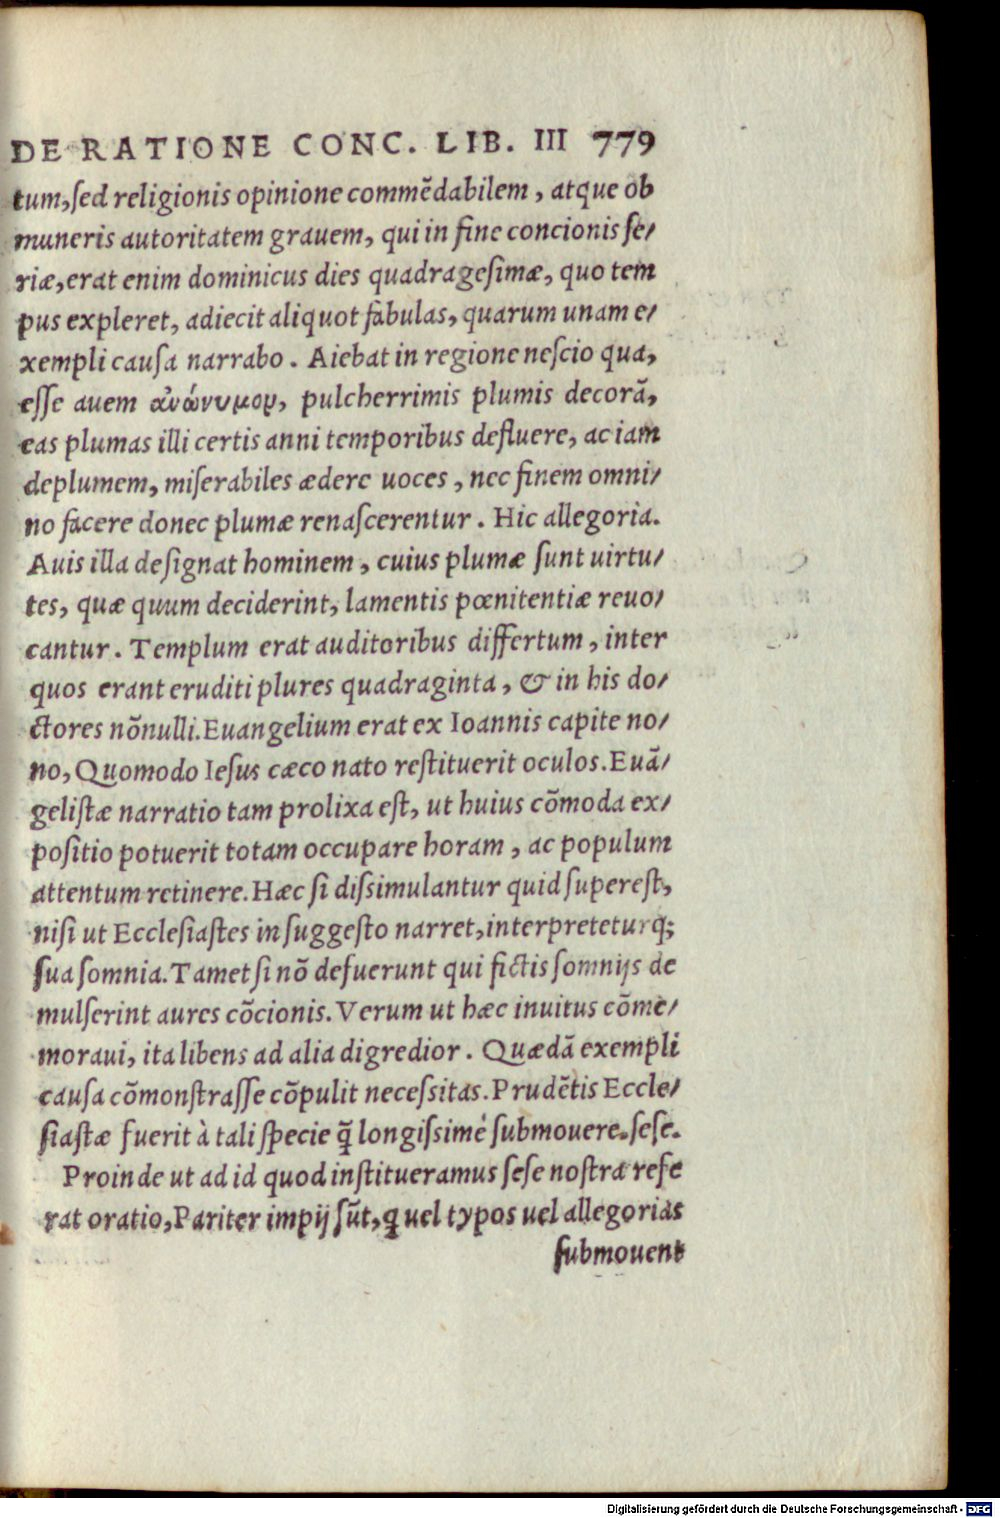 DE RATIONE CONC. LIB. III 779
tum,ſed religionis opinione commēdabilem, atque ob
muneris autoritatem grauem, qui in fine concionis ſe/
riæ,erat enim dominicus dies quadrageſimæ, quo tem
pus expleret, adiecit aliquot fabulas, quarum unam e/
xempli cauſa narrabo. Aiebat in regione neſcio qua,
eſſe auem ἀνώνυμον, pulcherrimis plumis decorā,
eas plumas illi certis anni temporibus defluere, ac iam
deplumem, miſerabiles ædere uoces, nec finem omni/
no facere donec plumæ renaſcerentur. Hic allegoria.
Auis illa deſignat hominem, cuius plumæ ſunt uirtu/
tes, quæ quum deciderint, lamentis pœnitentiæ reuo/
cantur. Templum erat auditoribus differtum, inter
quos erant eruditi plures quadraginta, & in his do/
ctores nōnulli.Euangelium erat ex Ioannis capite no/
no, Quomodo Ieſus cæco nato reſtituerit oculos.Euā/
geliſtæ narratio tam prolixa eſt, ut huius cōmoda ex/
poſitio potuerit totam occupare horam, ac populum
attentum retinere.Hæc ſi diſsimulantur quid ſupereſt,
niſi ut Eccleſiaſtes in ſuggeſto narret,interpreteturq́;
ſua ſomnia.Tametſi nō defuerunt qui fictis ſomnijs de
mulſerint aures cōcionis.Verum ut hæc inuitus cōme/
moraui, ita libens ad alia digredior. Quædā exempli
cauſa cōmonſtraſſe cōpulit neceſsitas.Prudētis Eccle/
ſiaſtæ fuerit à tali ſpecie q̄̃ longiſsimè ſubmouere.ſeſe.
Proinde ut ad id quod inſtitueramus ſeſe noſtra refe
rat oratio,Pariter impij ſūt,q uel typos uel allegorias
ſubmouent
Digitalisierung gefördert durch die Deutsche Forschungsgemeinschaft - DFG